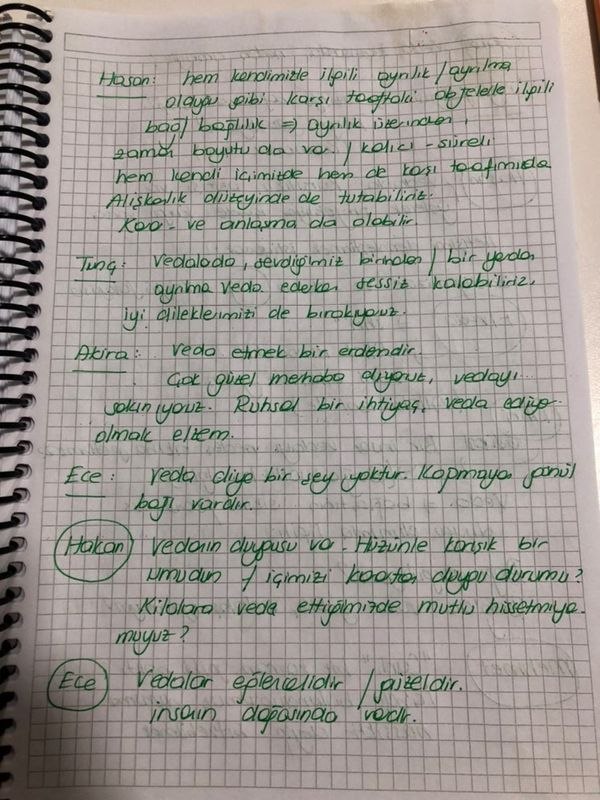 Hasan: hem kendimizle ilgili ayrılık / ayrılma
olayu gibi karşı taraftaki objelerle ilgili
bağ / bağlılık => ayrılık üzerinden,
zaman boyutu da var / kalıcı - süreli
hem kendi içimizde hem de karşı tarafımızda
Alışkanlık düzeyinde de tutabiliriz.
Karar - ve anlaşma da olabilir.
Tunç: Vedalarda, sevdiğimiz birinden / bir yerden
ayrılma veda ederken sessiz kalabiliriz,
iyi dileklerimizi de bırakıyoruz.
Akira: Veda etmek bir erdemdir.
Çok güzel merhaba diyoruz, vedayı...
sakınıyoruz. Ruhsal bir ihtiyaç, veda ediyor
olmak elzem.
Ece: Veda diye bir şey yoktur. Kopmayan gönül
bağı vardır.
Hakan Vedanın duygusu var. Hüzünle karışık bir
umudun / içimizi karartan duygu durumu?
Kilolara veda ettiğimizde mutlu hissetmiyor
muyuz?
Ece Vedalar eğlencelidir / güzeldir.
insanın doğasında vardır.